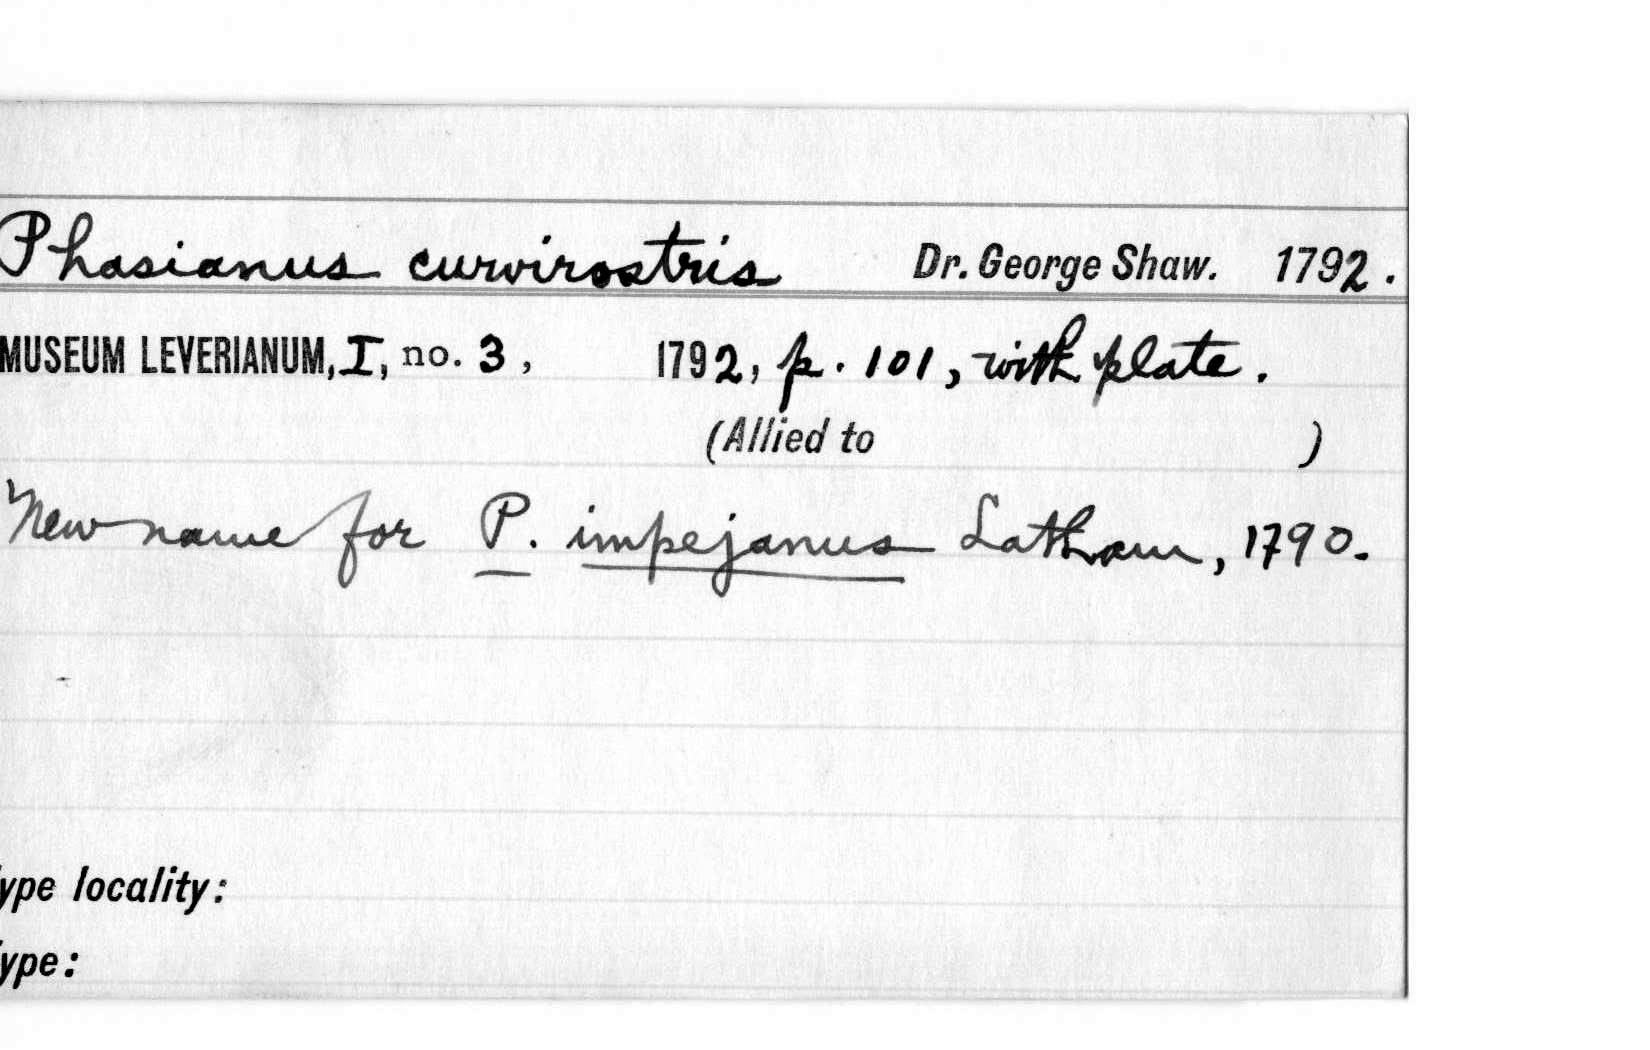 Phasianus curvirostris Dr. George Shaw. 1792.
MUSEUM LEVERIANUM, I, no. 3, 1792, p. 101, with plate.
(Allied to )
New name for P. impejanus Latham, 1790.
ype locality:
ype: